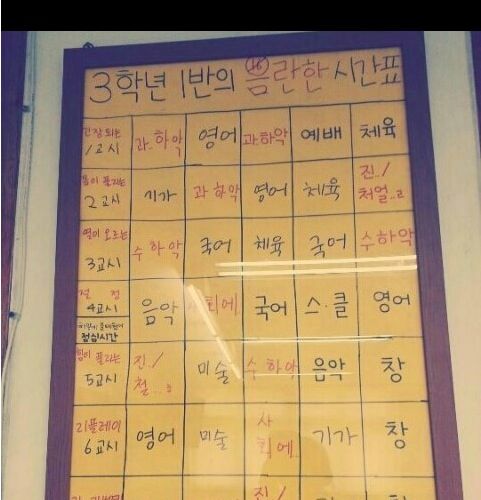 3학년 1반의 음란한 시간표
긴장되는
1교시 과.하악 영어 과하악 예배 체육
몸이 풀리는
2교시 기가 과 하악 영어 체육 진../
처얼..ㄹ
열이 오르는
3교시 수 하악 국어 체육 국어 수하악
절 정
4교시 음악 사회에 국어 스.클 영어
점심시간
힘이 풀리는
5교시 진../
철...ㅎ 미술 수 하악 음악 창
리플레이
6교시 영어 미술 사
회에 기가 창
진/